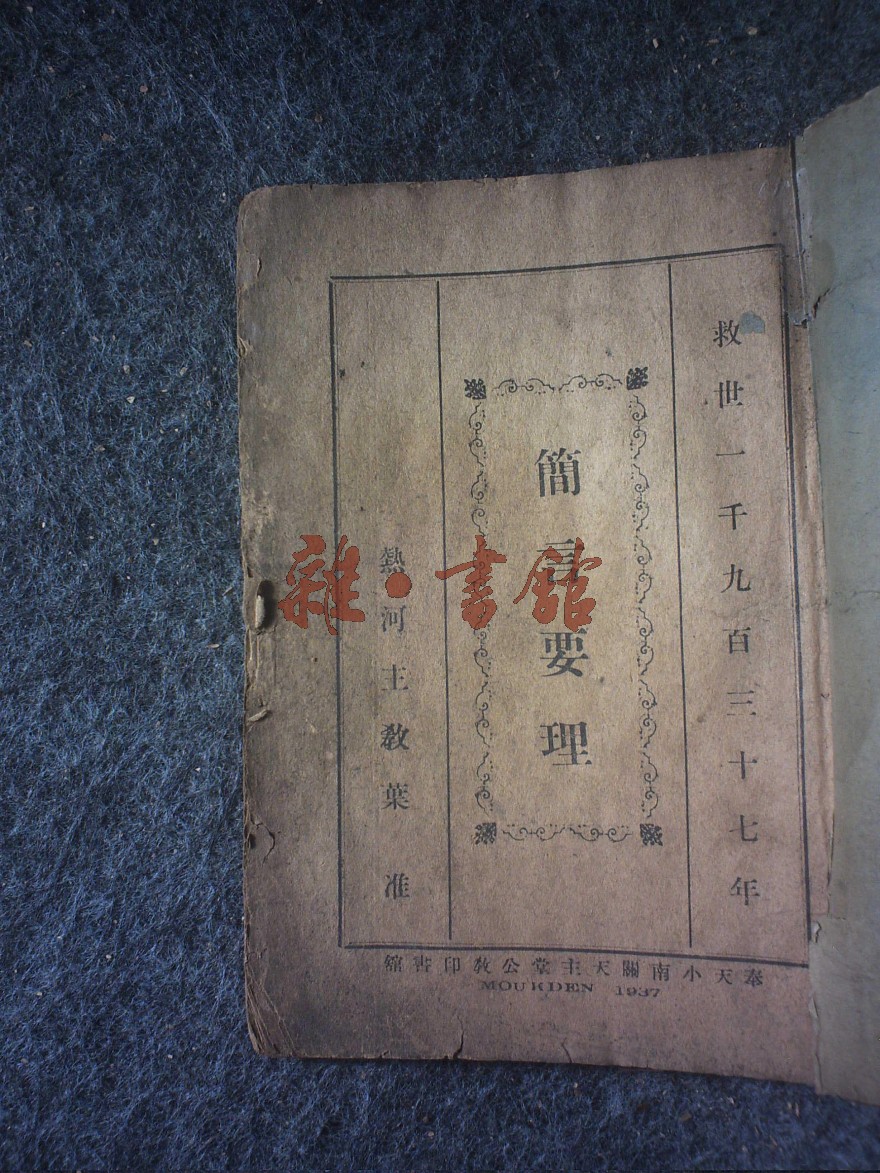 救世一千九百三十七年
簡言要理
熱河主敎葉准
奉天小南關天主堂公敎印書館
MOUKDEN 1937
雜·書館